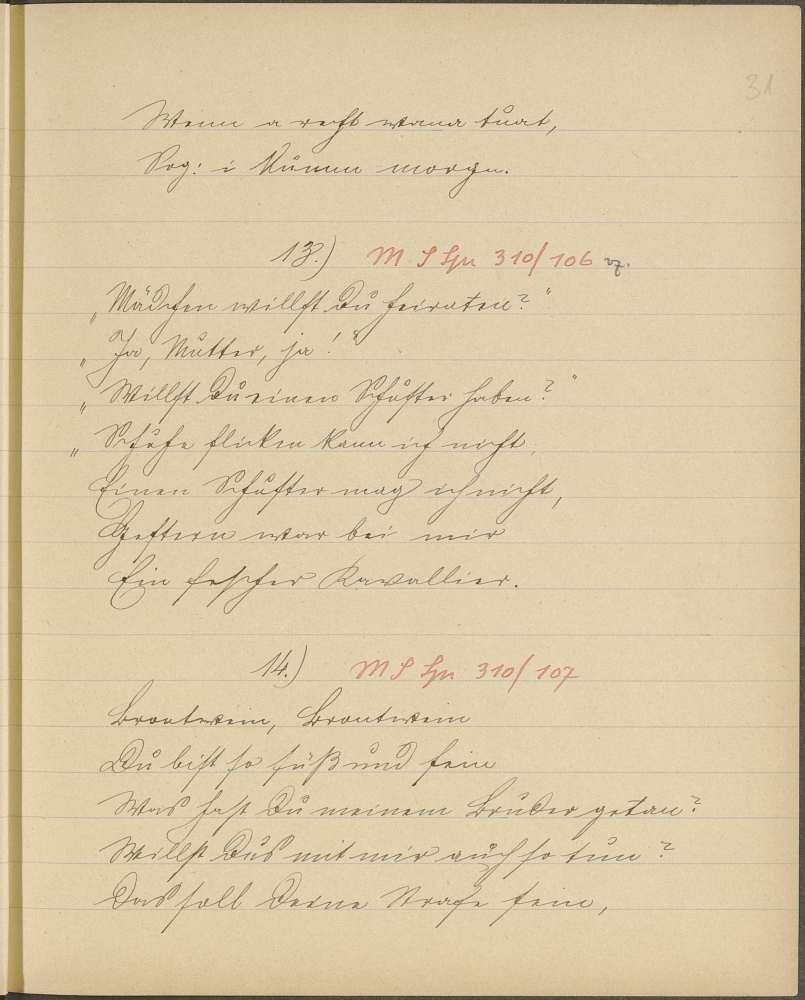 31
Wenn a recht wana tuat,
Sog: i kumm morgn.
13.) M S Spr 310/106 vz.
„Mädchen willst Du heiraten?"
„Ja, Mutter, ja!"
„Willst Du einen Schuster haben?"
„Schuhe flicken kann ich nicht.
Einen Schuster mag ich nicht,
Gestern war bei mir
Ein fescher Kavallier.
14.) M S Spr 310/107
Brantwein, Brantwein
Du bist so süß und fein
Was hast Du meinem Bruder getan?
Willst Dus mit mir auch so tun?
Das soll Deine Strafe sein,